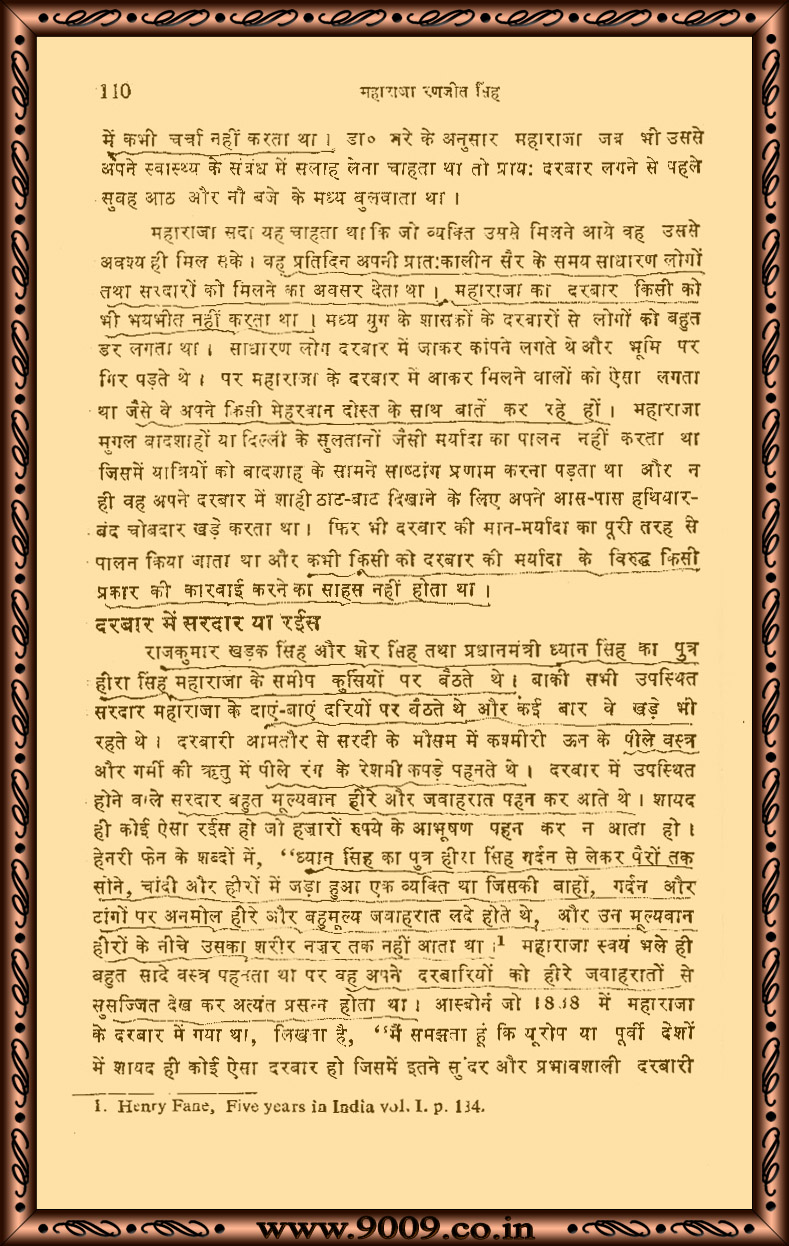 110 महाराजा रणजीत सिंह
में कभी चर्चा नहीं करता था। डा० मरे के अनुसार महाराजा जब भी उससे
अपने स्वास्थ्य के संबंध में सलाह लेना चाहता था तो प्राय: दरबार लगने से पहले
सुबह आठ और नौ बजे के मध्य बुलवाता था।
महाराजा सदा यह चाहता था कि जो व्यक्ति उससे मिलने आये वह उससे
अवश्य ही मिल सके। वह प्रतिदिन अपनी प्रात:कालीन सैर के समय साधारण लोगों
तथा सरदारों को मिलने का अवसर देता था। महाराजा का दरबार किसी को
भी भयभीत नहीं करता था। मध्य युग के शासकों के दरबारों से लोगों को बहुत
डर लगता था। साधारण लोग दरबार में जाकर कांपने लगते थे और भूमि पर
गिर पड़ते थे। पर महाराजा के दरबार में आकर मिलने वालों को ऐसा लगता
था जैसे वे अपने किसी मेहरबान दोस्त के साथ बातें कर रहे हों। महाराजा
मुगल बादशाहों या दिल्ली के सुलतानों जैसी मर्यादा का पालन नहीं करता था
जिसमें यात्रियों को बादशाह के सामने साष्टांग प्रणाम करना पड़ता था और न
ही वह अपने दरबार में शाही ठाट-बाट दिखाने के लिए अपने आस-पास हथियार-
बंद चोबदार खड़े करता था। फिर भी दरबार की मान-मर्यादा का पूरी तरह से
पालन किया जाता था और कभी किसी को दरबार की मर्यादा के विरुद्ध किसी
प्रकार की कारवाई करने का साहस नहीं होता था।
दरबार में सरदार या रईस
राजकुमार खड़क सिंह और शेर सिंह तथा प्रधानमंत्री ध्यान सिंह का पुत्र
हीरा सिंह महाराजा के समीप कुर्सियों पर बैठते थे। बाकी सभी उपस्थित
सरदार महाराजा के दाएं-बाएं दरियों पर बैठते थे और कई बार वे खड़े भी
रहते थे। दरबारी आमतौर से सरदी के मौसम में कश्मीरी ऊन के पीले वस्त्र
और गर्मी की ऋतु में पीले रंग के रेशमी कपड़े पहनते थे। दरबार में उपस्थित
होने वाले सरदार बहुत मूल्यवान हीरे और जवाहरात पहन कर आते थे। शायद
ही कोई ऐसा रईस हो जो हज़ारों रुपये के आभूषण पहन कर न आता हो।
हेनरी फेन के शब्दों में, “ध्यान सिंह का पुत्र हीरा सिंह गर्दन से लेकर पैरों तक
सोने, चांदी और हीरों में जड़ा हुआ एक व्यक्ति था जिसकी बाहों, गर्दन और
टांगों पर अनमोल हीरे और बहुमूल्य जवाहरात लदे होते थे, और उन मूल्यवान
हीरों के नीचे उसका शरीर नज़र तक नहीं आता था।¹ महाराजा स्वयं भले ही
बहुत सादे वस्त्र पहनता था पर वह अपने दरबारियों को हीरे जवाहरातों से
सुसज्जित देख कर अत्यंत प्रसन्न होता था। आस्बोर्न जो 1838 में महाराजा
के दरबार में गया था, लिखता है, “मैं समझता हूं कि यूरोप या पूर्वी देशों
में शायद ही कोई ऐसा दरबार हो जिसमें इतने सुंदर और प्रभावशाली दरबारी
1. Henry Fane, Five years in India vol. I. p. 134.
www.9009.co.in